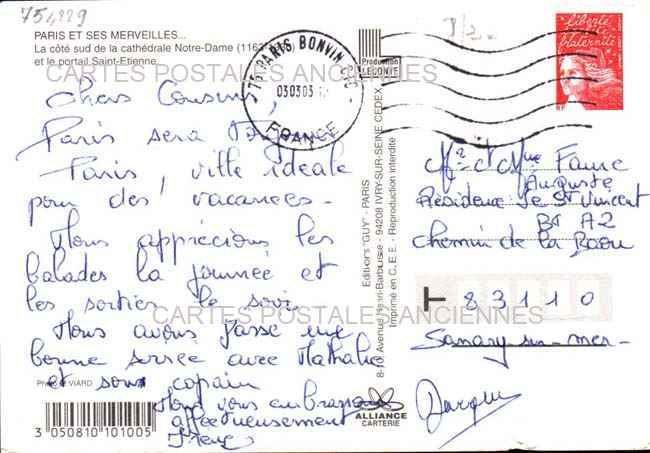 754229
PARIS ET SES MERVEILLES...
La côté sud de la cathédrale Notre-Dame
et le portail Saint-Etienne.
CARTES POSTALES ANCIENNES
Chers Cousins,
Paris sera Toujours
Paris, ville idéale
pour des vacances.
Nous apprécions les
balades la journée et
les sorties le soir
CARTES POSTALES ANCIENNES
Nous avons passé une
bonne soirée avec Nathalie
et son copain
Nous vous embrassons
affectueusement
Irène
Photo VIARD
3 050810 101005
75 PARIS BONVIN
030303
FRANCE
Production
LECONTE
Editions "GUY" - PARIS
8-10, Avenue Henri-Barbusse - 94208 IVRY-SUR-SEINE CEDEX
Imprimé en C.E.E. - Reproduction interdite
ALLIANCE
CARTERIE
liberté
égalité
fraternité
RF
Mr et Mme Faure
Auguste
Résidence Le St Vincent
Bt A2
Chemin de la Baou
83110
Sanary-sur-mer
Jacques